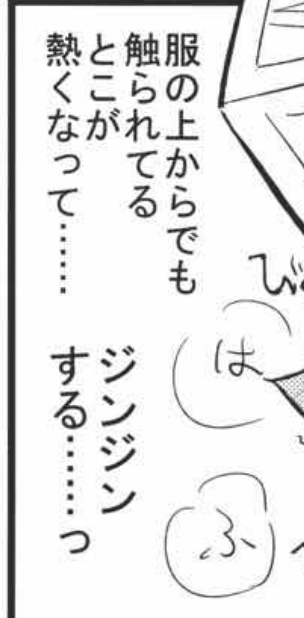 服の上からでも
触られてる
とこが
熱くなって……
ジンジン
する……っ
は
ふ